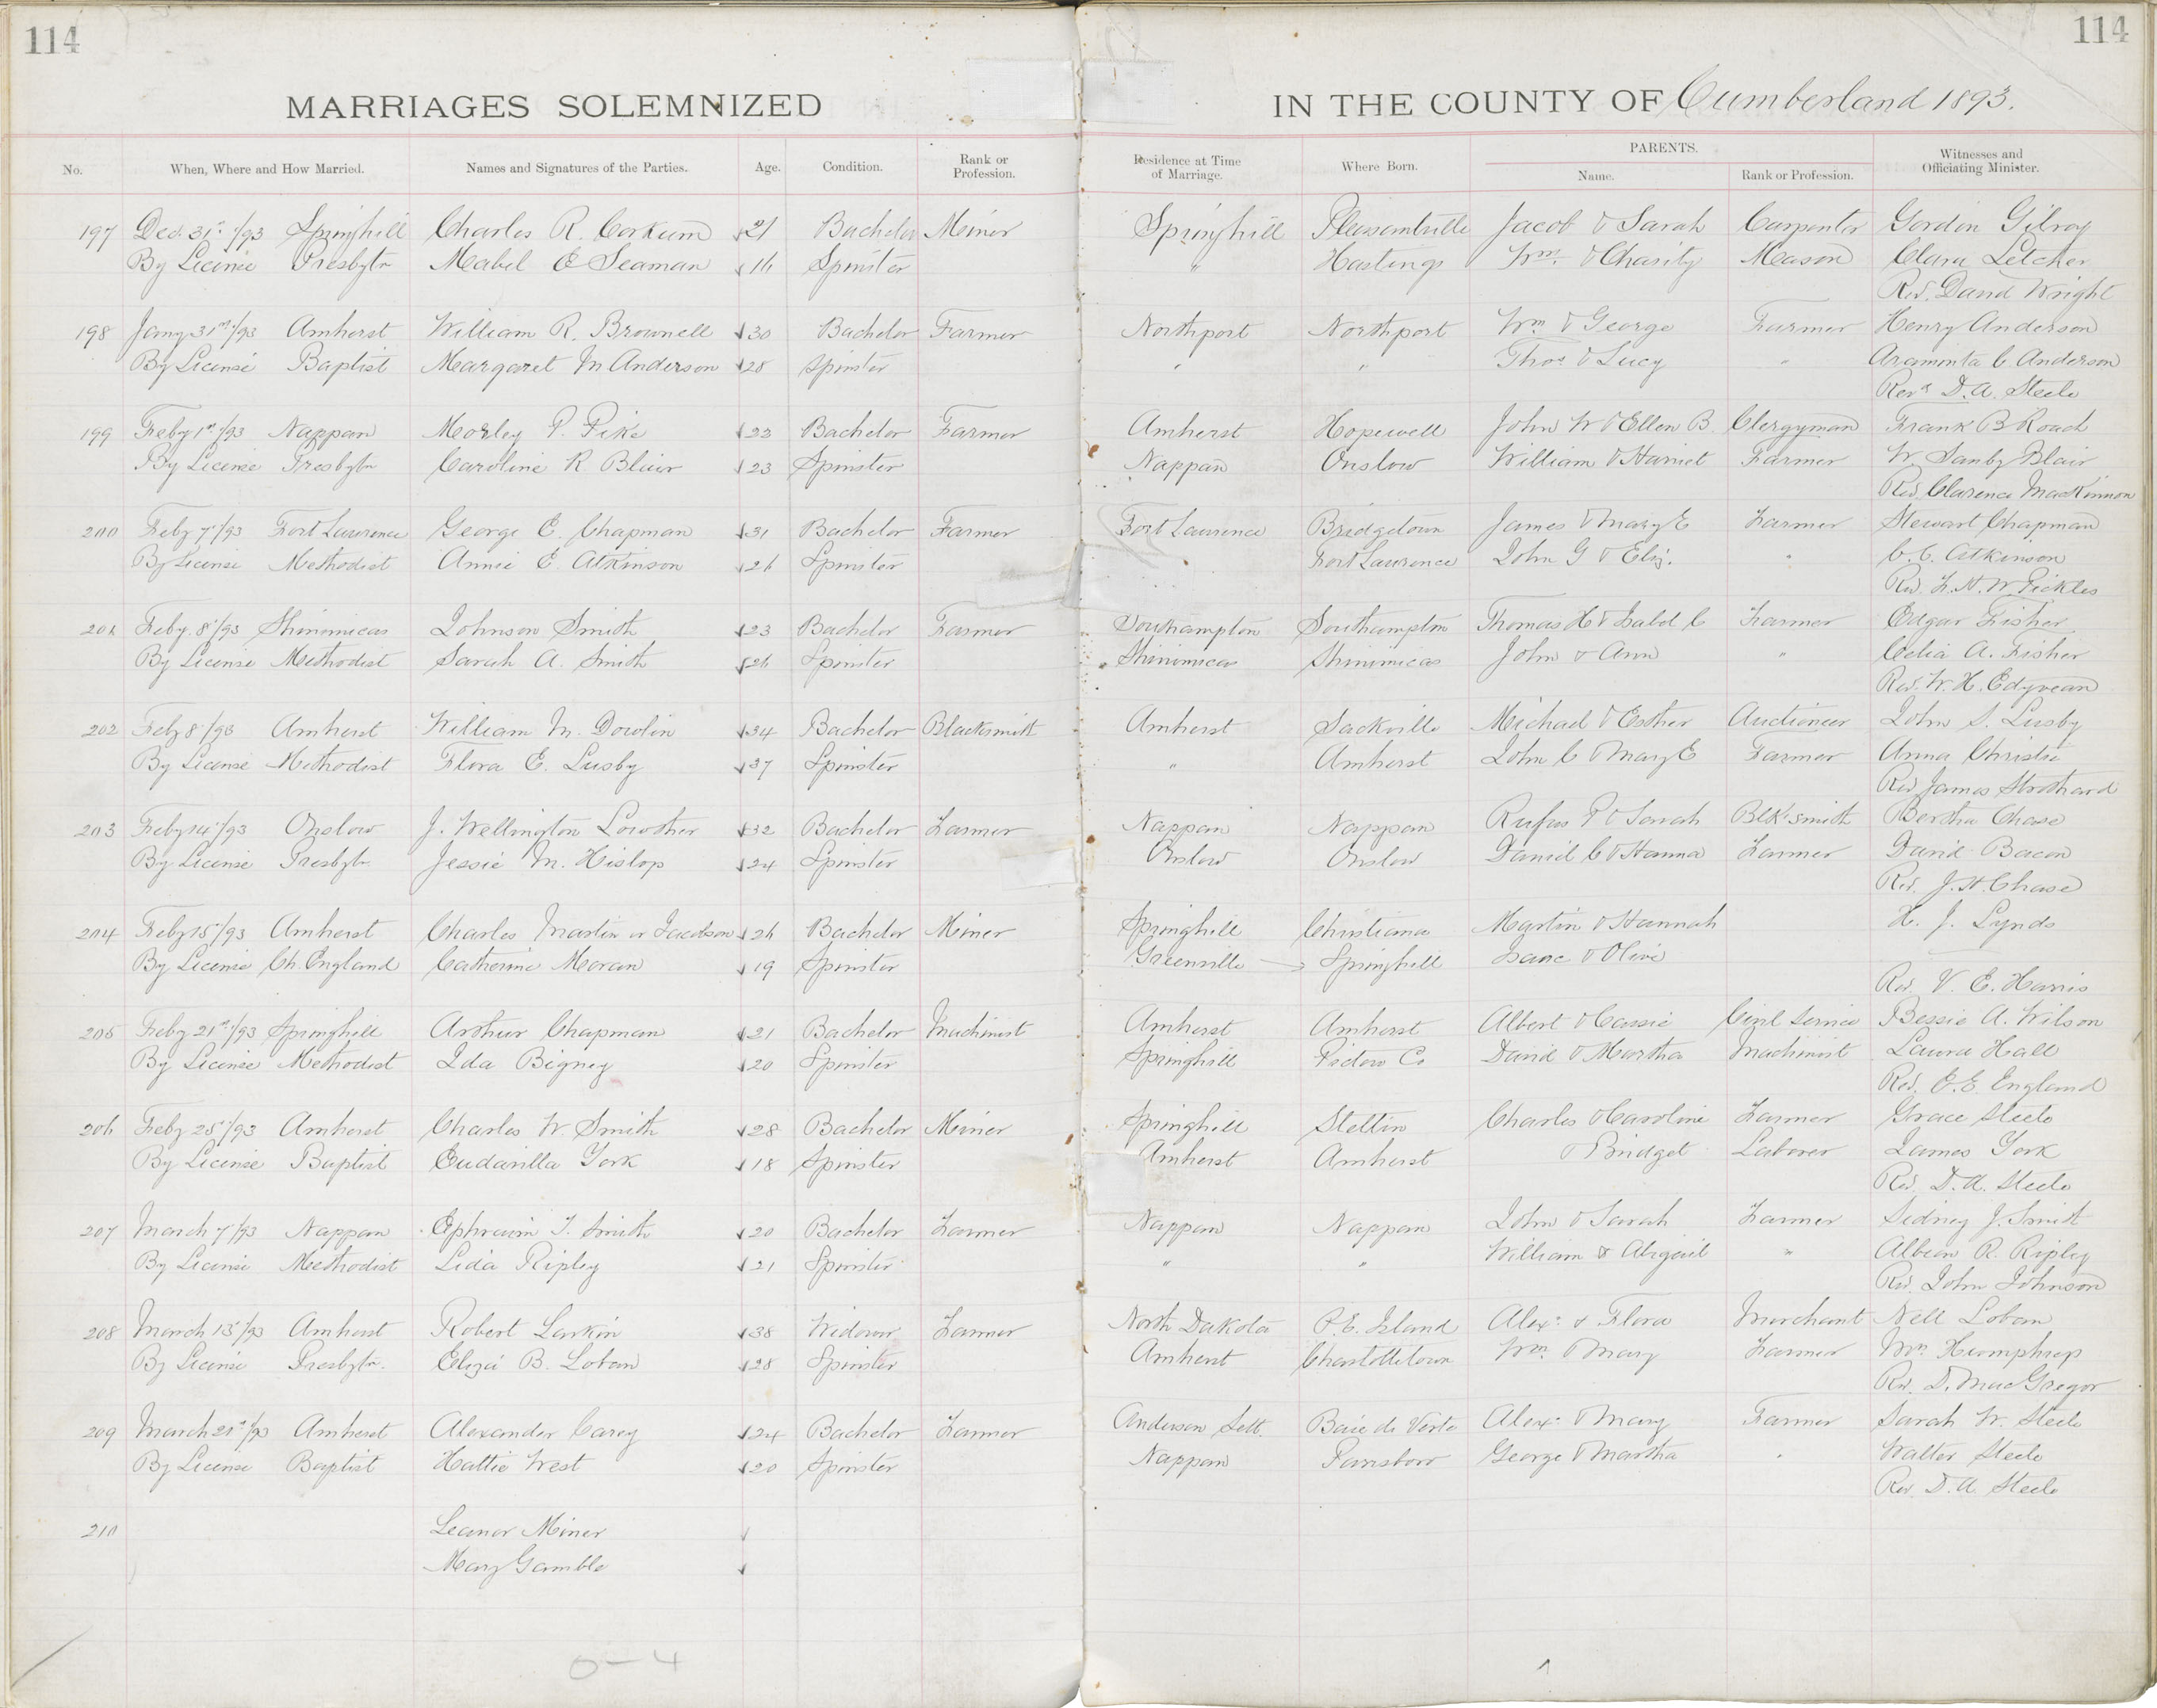 114
114
MARRIAGES SOLEMNIZED IN THE COUNTY OF Cumberland 1893.
No. When, Where and How Married. Names and Signatures of the Parties. Age. Condition. Rank or Profession. Residence at Time of Marriage. Where Born. PARENTS. Name. Rank or Profession. Witnesses and Officiating Minister.
197 Dec. 31st /93 Springhill Charles R. Corkum 21 Bachelor Miner Springhill Pleasantville Jacob & Sarah Carpenter Gordon Gilroy
By License Presbytn Mabel E Seaman 16 Spinster " Hastings Wm. & Charity Mason Clara Letcher
Rev. David Wright
198 Jany 31st /93 Amherst William R. Brownell 30 Bachelor Farmer Northport Northport Wm & George Farmer Henry Anderson
By License Baptist Margaret M Anderson 28 Spinster " " Thos & Lucy " Araminta C Anderson
Revd D. A. Steele
199 Feby 1st /93 Nappan Morley P. Pike 23 Bachelor Farmer Amherst Hopewell John W & Ellen B. Clergyman Frank B Roach
By License Presbytn Caroline R. Blair 23 Spinster Nappan Onslow William & Harriet Farmer W. Sanby Blair
Rev. Clarence MacKinnon
200 Feby 7 /93 Fort Lawrence George E. Chapman 31 Bachelor Farmer Fort Lawrence Bridgetown James & Mary E Farmer Stewart Chapman
By License Methodist Annie E. Atkinson 26 Spinster Fort Lawrence John G & Eliz. " C. C. Atkinson
Rev. F. H. W. Pickles
201 Feby. 8 /93 Shinimicas Johnson Smith 23 Bachelor Farmer Southampton Southampton Thomas H & Isabel C Farmer Edgar Fisher
By License Methodist Sarah A. Smith 26 Spinster Shinimicas Shinimicas John & Ann " Celia A. Fisher
Rev. W. H. Edyvean
202 Feby 8 /93 Amherst William M. Dowlin 34 Bachelor Blacksmith Amherst Sackville Michael & Esther Auctioneer John S. Lusby
By License Methodist Flora E. Lusby 37 Spinster " Amherst John C & Mary E Farmer Anna Christie
Rev James Strothard
203 Feby 14 /93 Onslow J. Wellington Lowther 32 Bachelor Farmer Nappan Nappan Rufus P & Sarah Blk.smith Bertha Chase
By License Presbytn Jessie M. Hislop 24 Spinster Onslow Onslow Daniel C & Hanna Farmer David Bacon
Rev. J. H. Chase
204 Feby 15 /93 Amherst Charles Martin or Jacobson 26 Bachelor Miner Springhill Christiana Martin & Hannah H. J. Lynds
By License Ch. England Catherine Moran 19 Spinster Greenville Springhill Isaac & Olive
Rev. V. E. Harris
205 Feby 21st /93 Springhill Arthur Chapman 21 Bachelor Machinist Amherst Amherst Albert & Cassie Civil Service Bessie A. Wilson
By License Methodist Ida Bigney 20 Spinster Springhill Pictou Co David & Martha Machinist Laura Hall
Rev. E. E. England
206 Feby 25 /93 Amherst Charles W. Smith 28 Bachelor Miner Springhill Stettin Charles & Caroline Farmer Grace Steele
By License Baptist Eudavilla York 18 Spinster Amherst Amherst & Bridget Laborer James York
Rev. D. A. Steele
207 March 7 /93 Nappan Ephraim T. Smith 20 Bachelor Farmer Nappan Nappan John & Sarah Farmer Sidney J. Smith
By License Methodist Lida Ripley 21 Spinster " " William & Abigail " Albion R. Ripley
Rev John Johnson
208 March 15 /93 Amherst Robert Larkin 38 Widower Farmer North Dakota P. E. Island Alexr & Flora Merchant Nell Loban
By License Presbytn. Eliza B. Loban 28 Spinster Amherst Charlottetown Wm. & Mary Farmer Wm. Humphrey
Rev. D. MacGregor
209 March 21st /93 Amherst Alexander Carey 24 Bachelor Farmer Anderson Sett. Baie de Verte Alexr & Mary Farmer Sarah W. Steele
By License Baptist Hattie West 20 Spinster Nappan Parrsboro George & Martha " Walter Steele
Rev. D. A. Steele
210 Leanor Miner
Mary Gamble
0-4